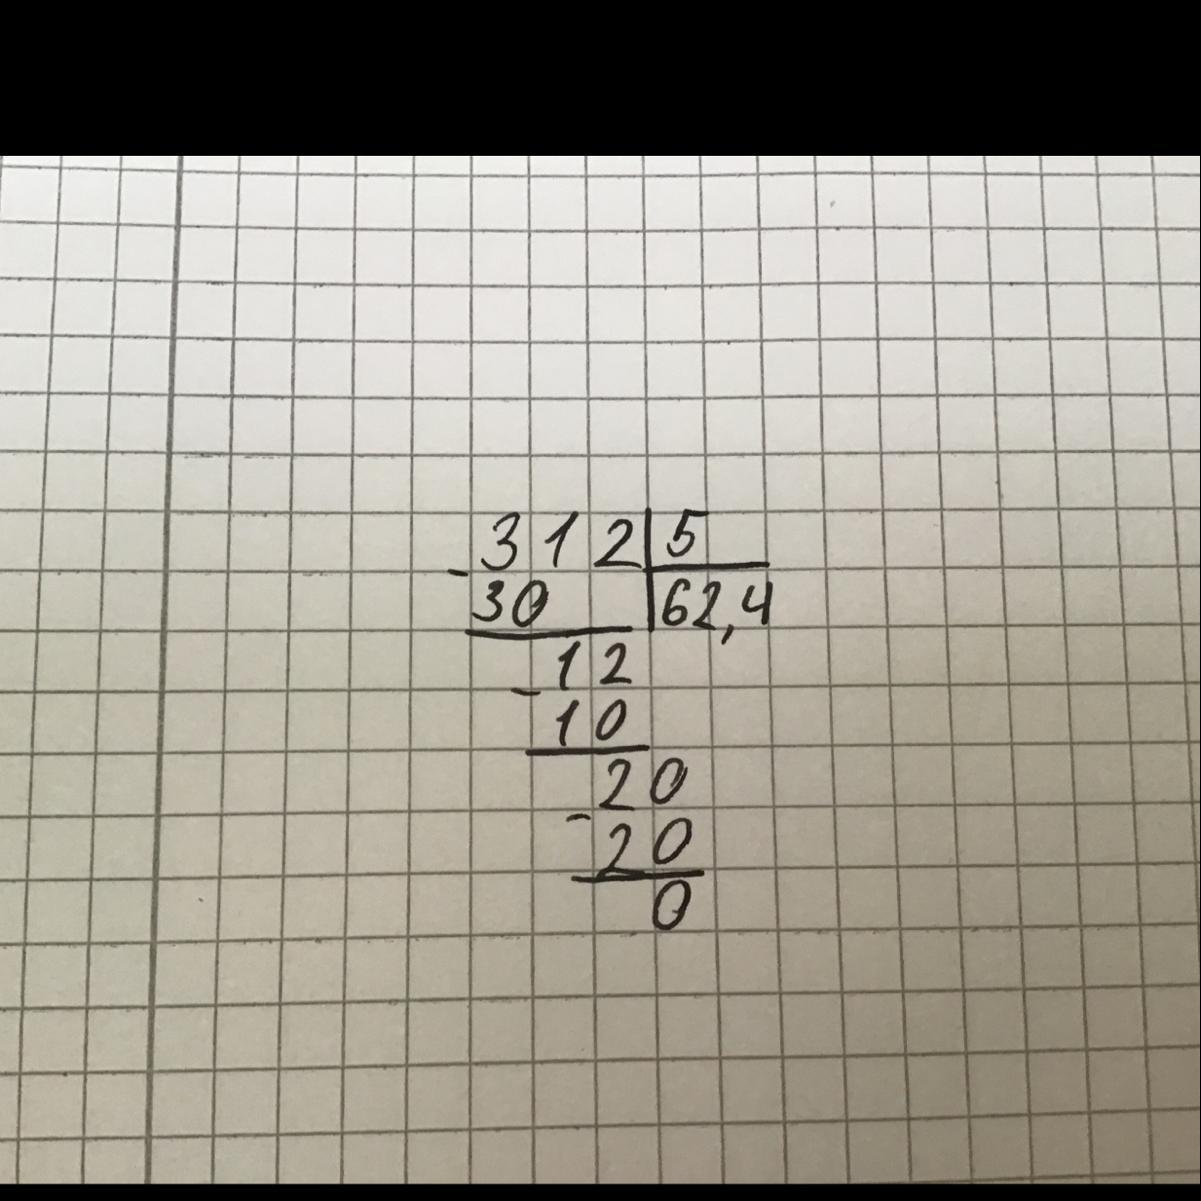 312|5
-30 |62,4
-12
10
-20
20
0